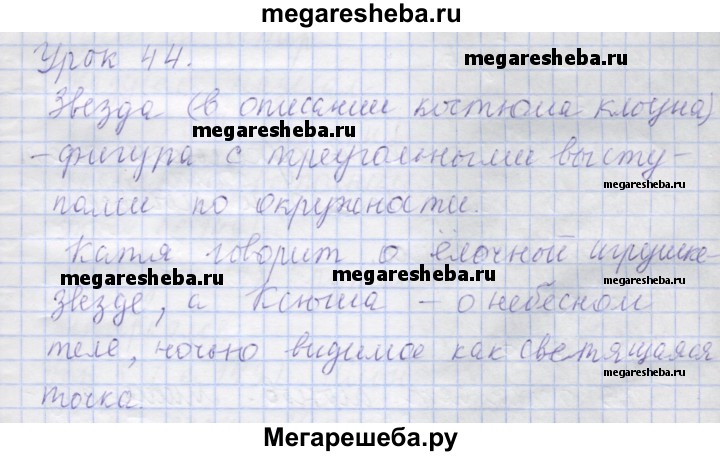 megaresheba.ru
Урок 44.
megaresheba.ru
Звезда (в описании костюма клоуна)
megaresheba.ru
- фигура с треугольными высту-
megaresheba.ru
пами по окружности.
Катя говорит о ёлочной игрушке-
megaresheba.ru
megaresheba.ru
звезде, а Ксюша - о небесном
теле, ночью видимое как светящаяся
megaresheba.ru
точка.
Мегарешеба.ру